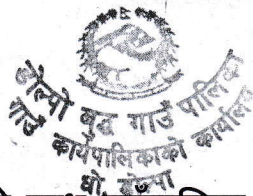 डोल्पो बुद्ध गाउँ पालिका
गाउँ कार्यपालिकाको कार्यालय
धो, डोल्पा